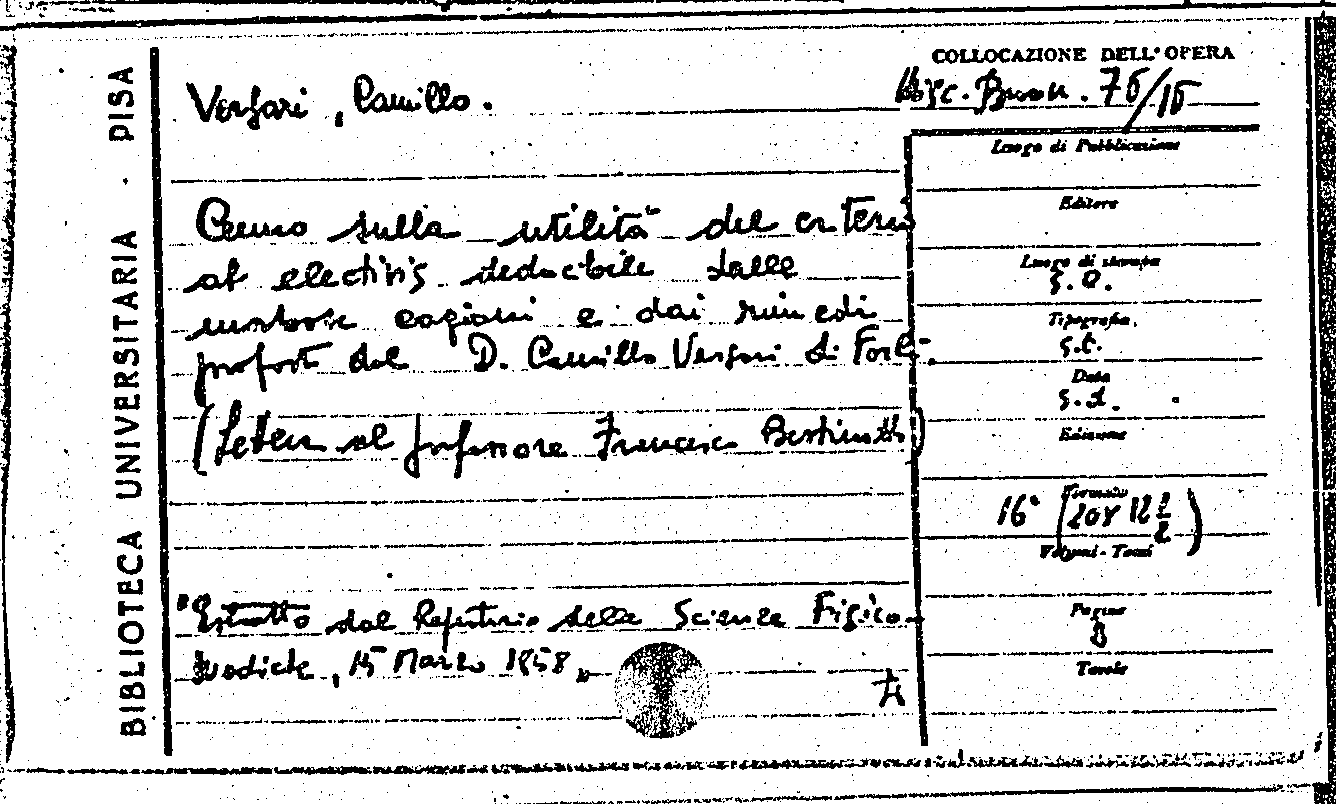 BIBLIOTECA UNIVERSITARIA · PISA
COLLOCAZIONE DELL'OPERA
Vergari, Camillo.
Misc. 76/15
Luogo di Pubblicazione
Cenno sulla utilità del criterio
Editore
deducibile dalle
Luogo di stampa
S.L.
morbose cagioni e dai rimedi
Tipografia.
s.t.
proposto dal D. Camillo Vergari di Forlì.
Data
s.d.
(Lettera al professore Francesco
Edizione
Formato
16° (20x12½)
Volumi - Tomi
"Estratto dal Repertorio delle Scienze Fisico-
Pagine
8
Mediche, 15 Marzo 1858"
Tavole